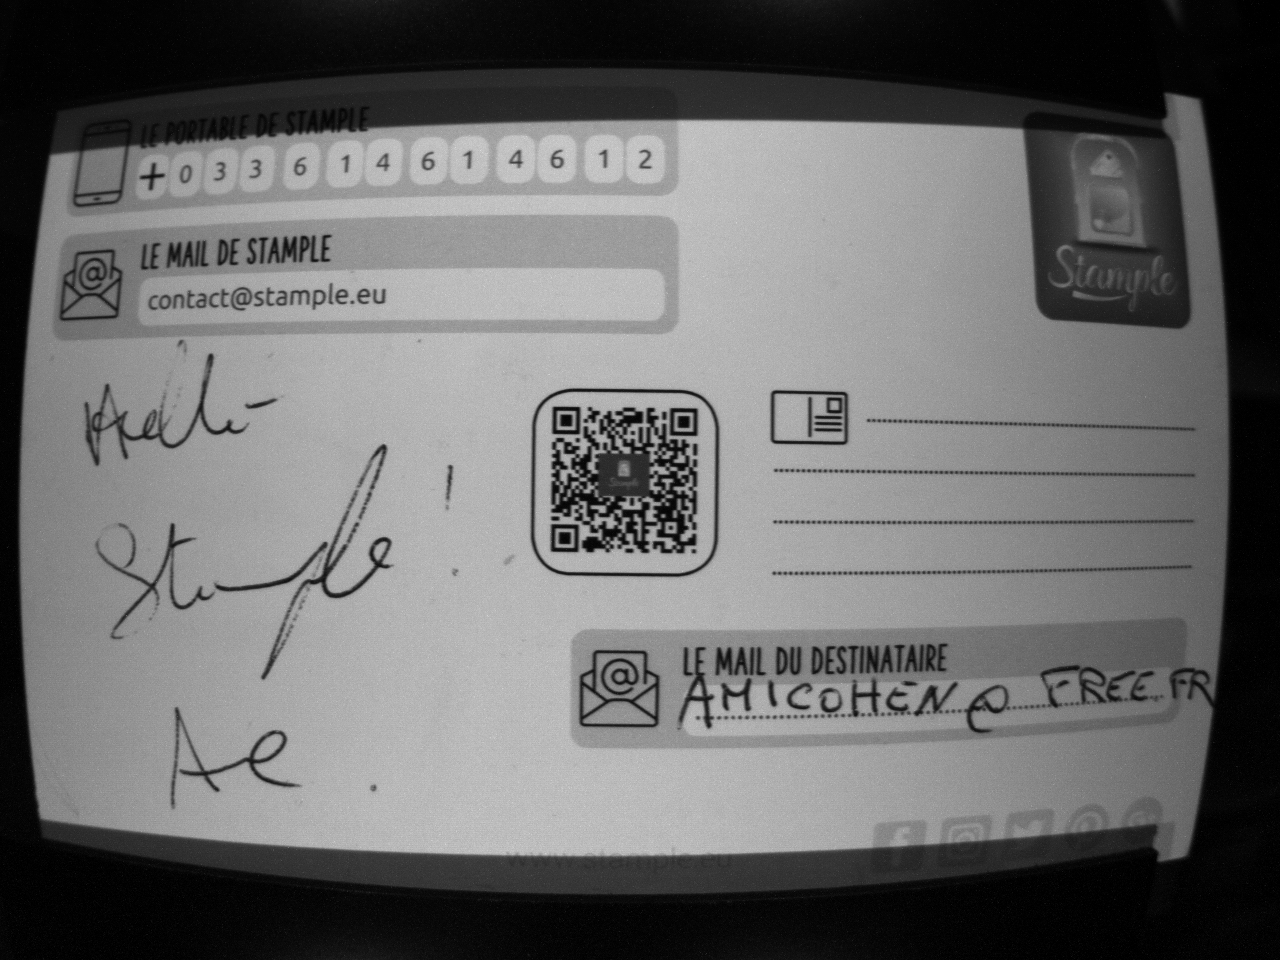 LE PORTABLE DE STAMPLE
+ 0 3 3 6 1 4 6 1 4 6 1 2
LE MAIL DE STAMPLE
contact@stample.eu
Stample
Stample !
Stample
LE MAIL DU DESTINATAIRE
AMICOHEN@FREE.FR
www.stample.eu